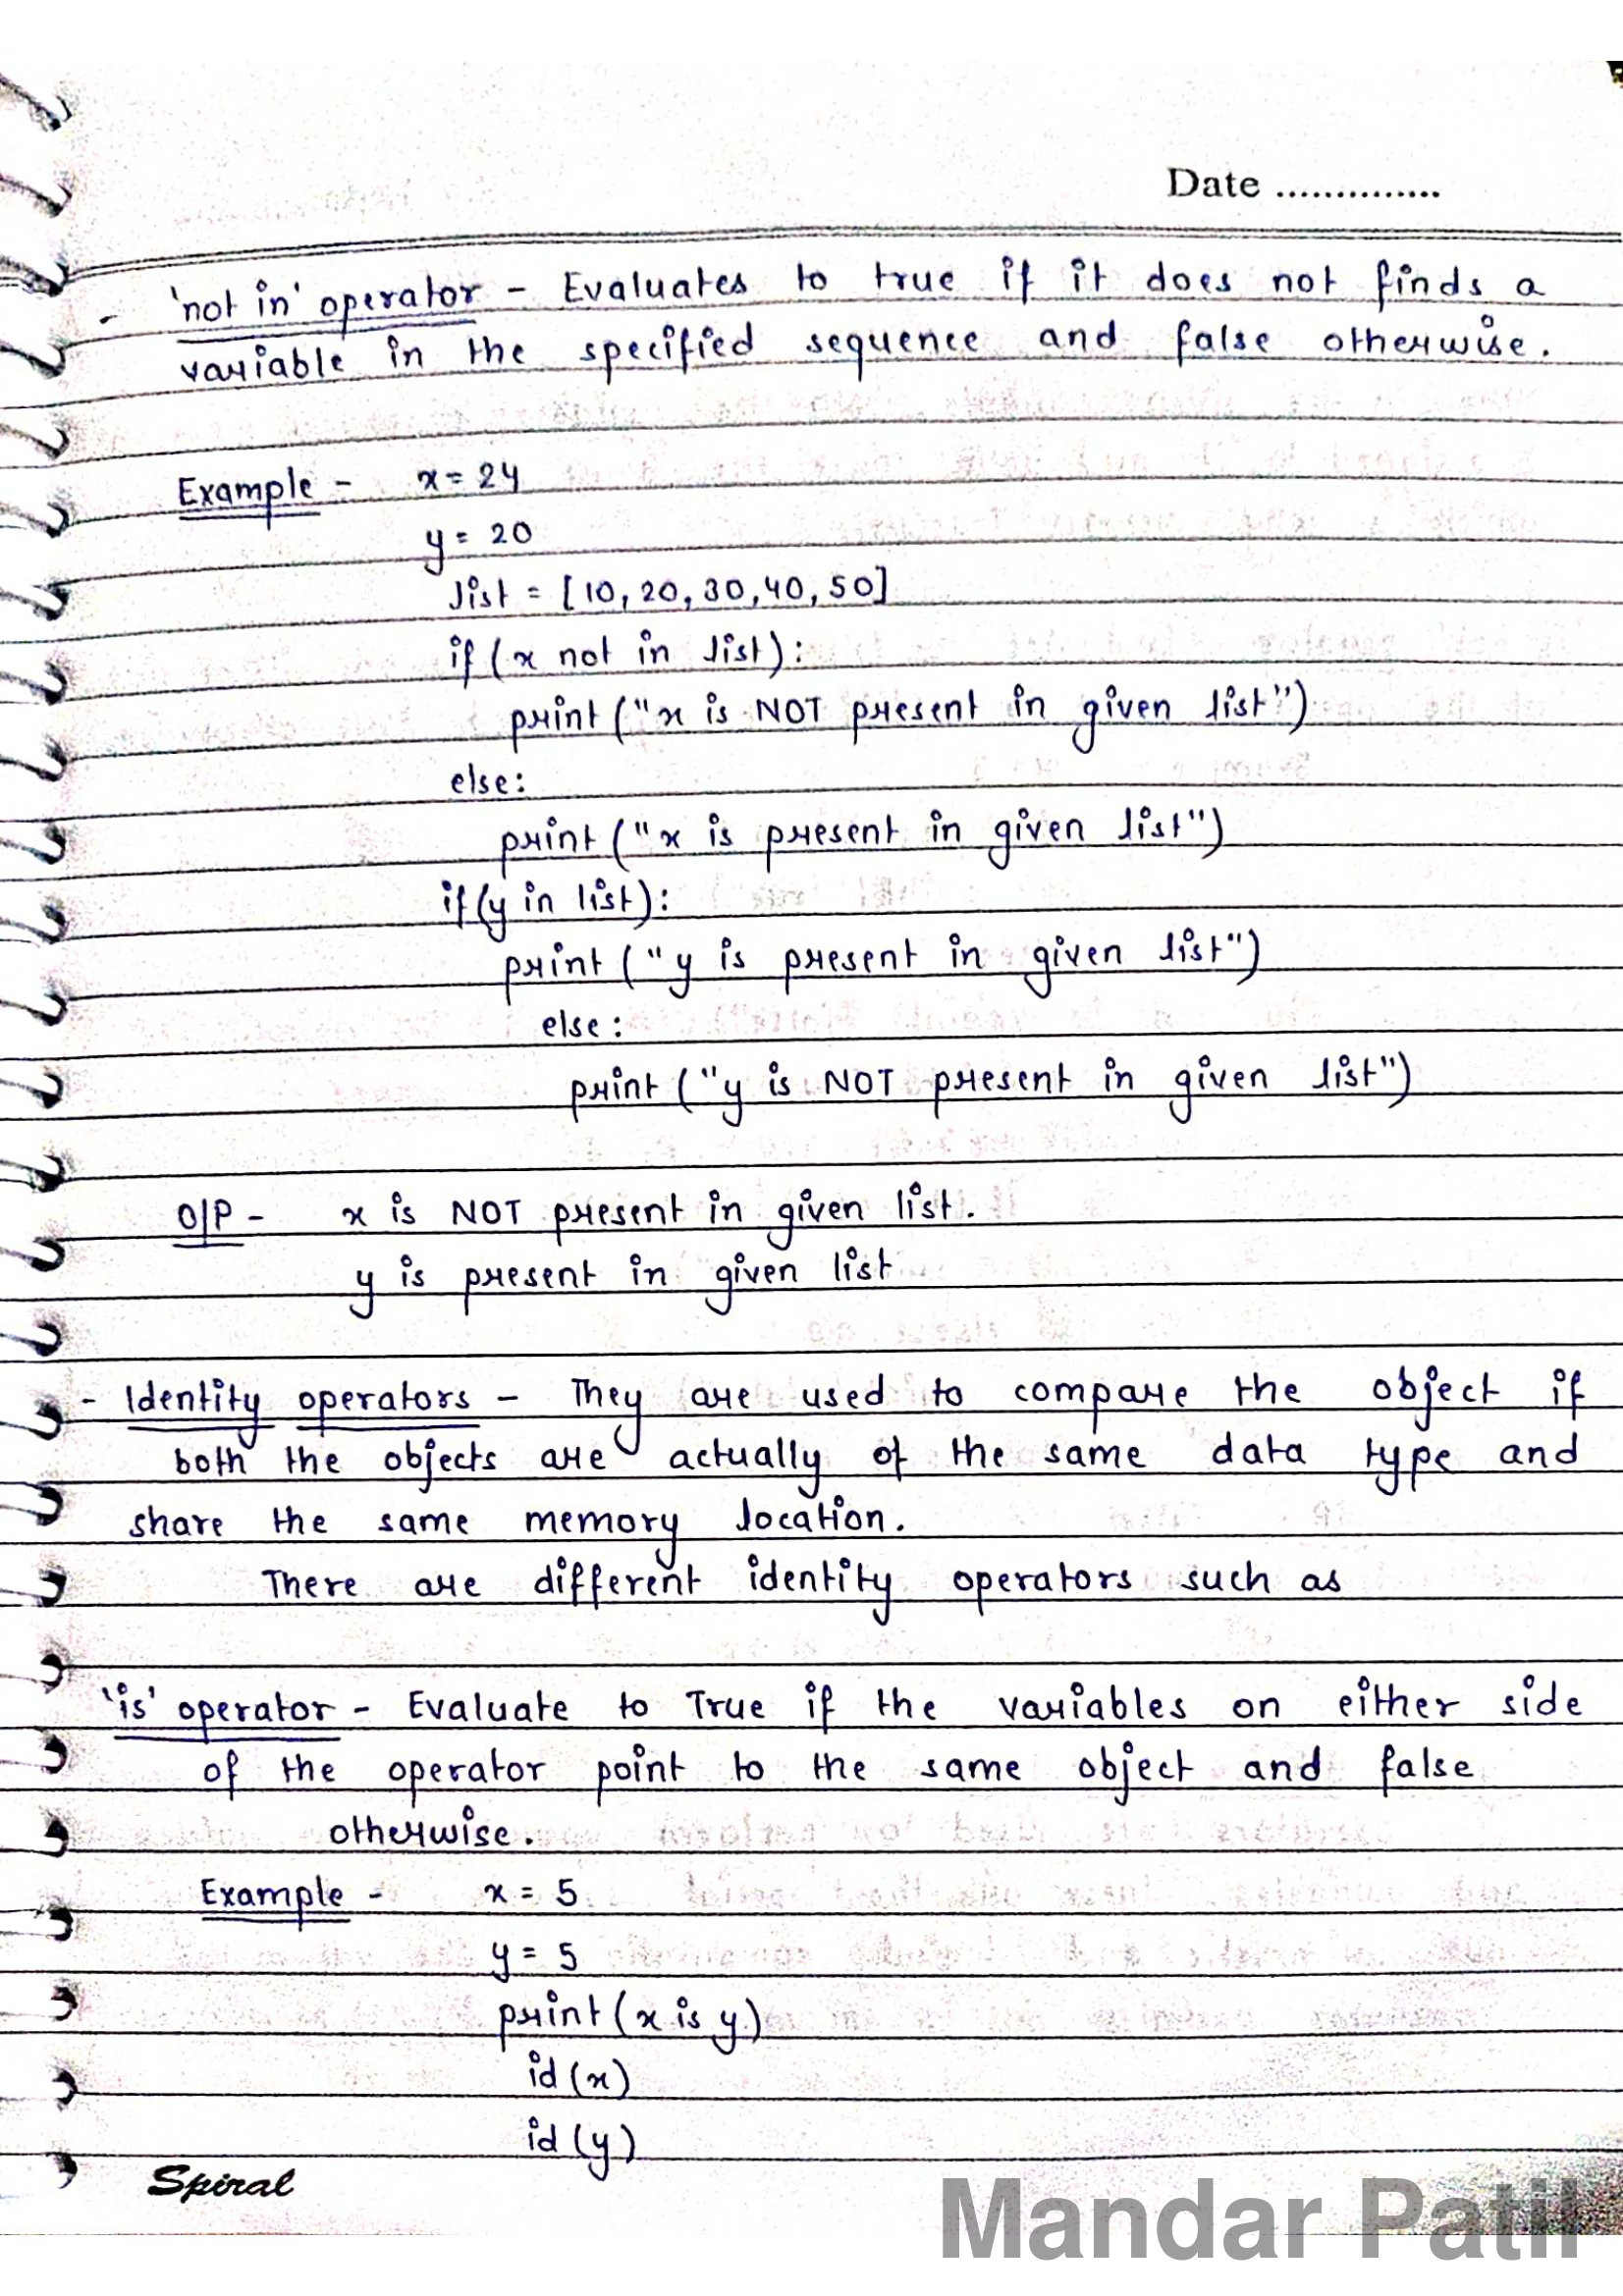 Date ..............
- 'not in' operator - Evaluates to true if it does not finds a
variable in the specified sequence and false otherwise.
Example - x = 24
y = 20
list = [10, 20, 30, 40, 50]
if (x not in list):
print ("x is NOT present in given list")
else:
print ("x is present in given list")
if (y in list):
print ("y is present in given list")
else:
print ("y is NOT present in given list")
O/P - x is NOT present in given list.
y is present in given list
- Identity operators - They are used to compare the object if
both the objects are actually of the same data type and
share the same memory location.
There are different identity operators such as
'is' operator - Evaluate to True if the variables on either side
of the operator point to the same object and false
otherwise.
Example - x = 5
y = 5
print (x is y)
id (x)
id (y)
Spiral
Mandar Patil